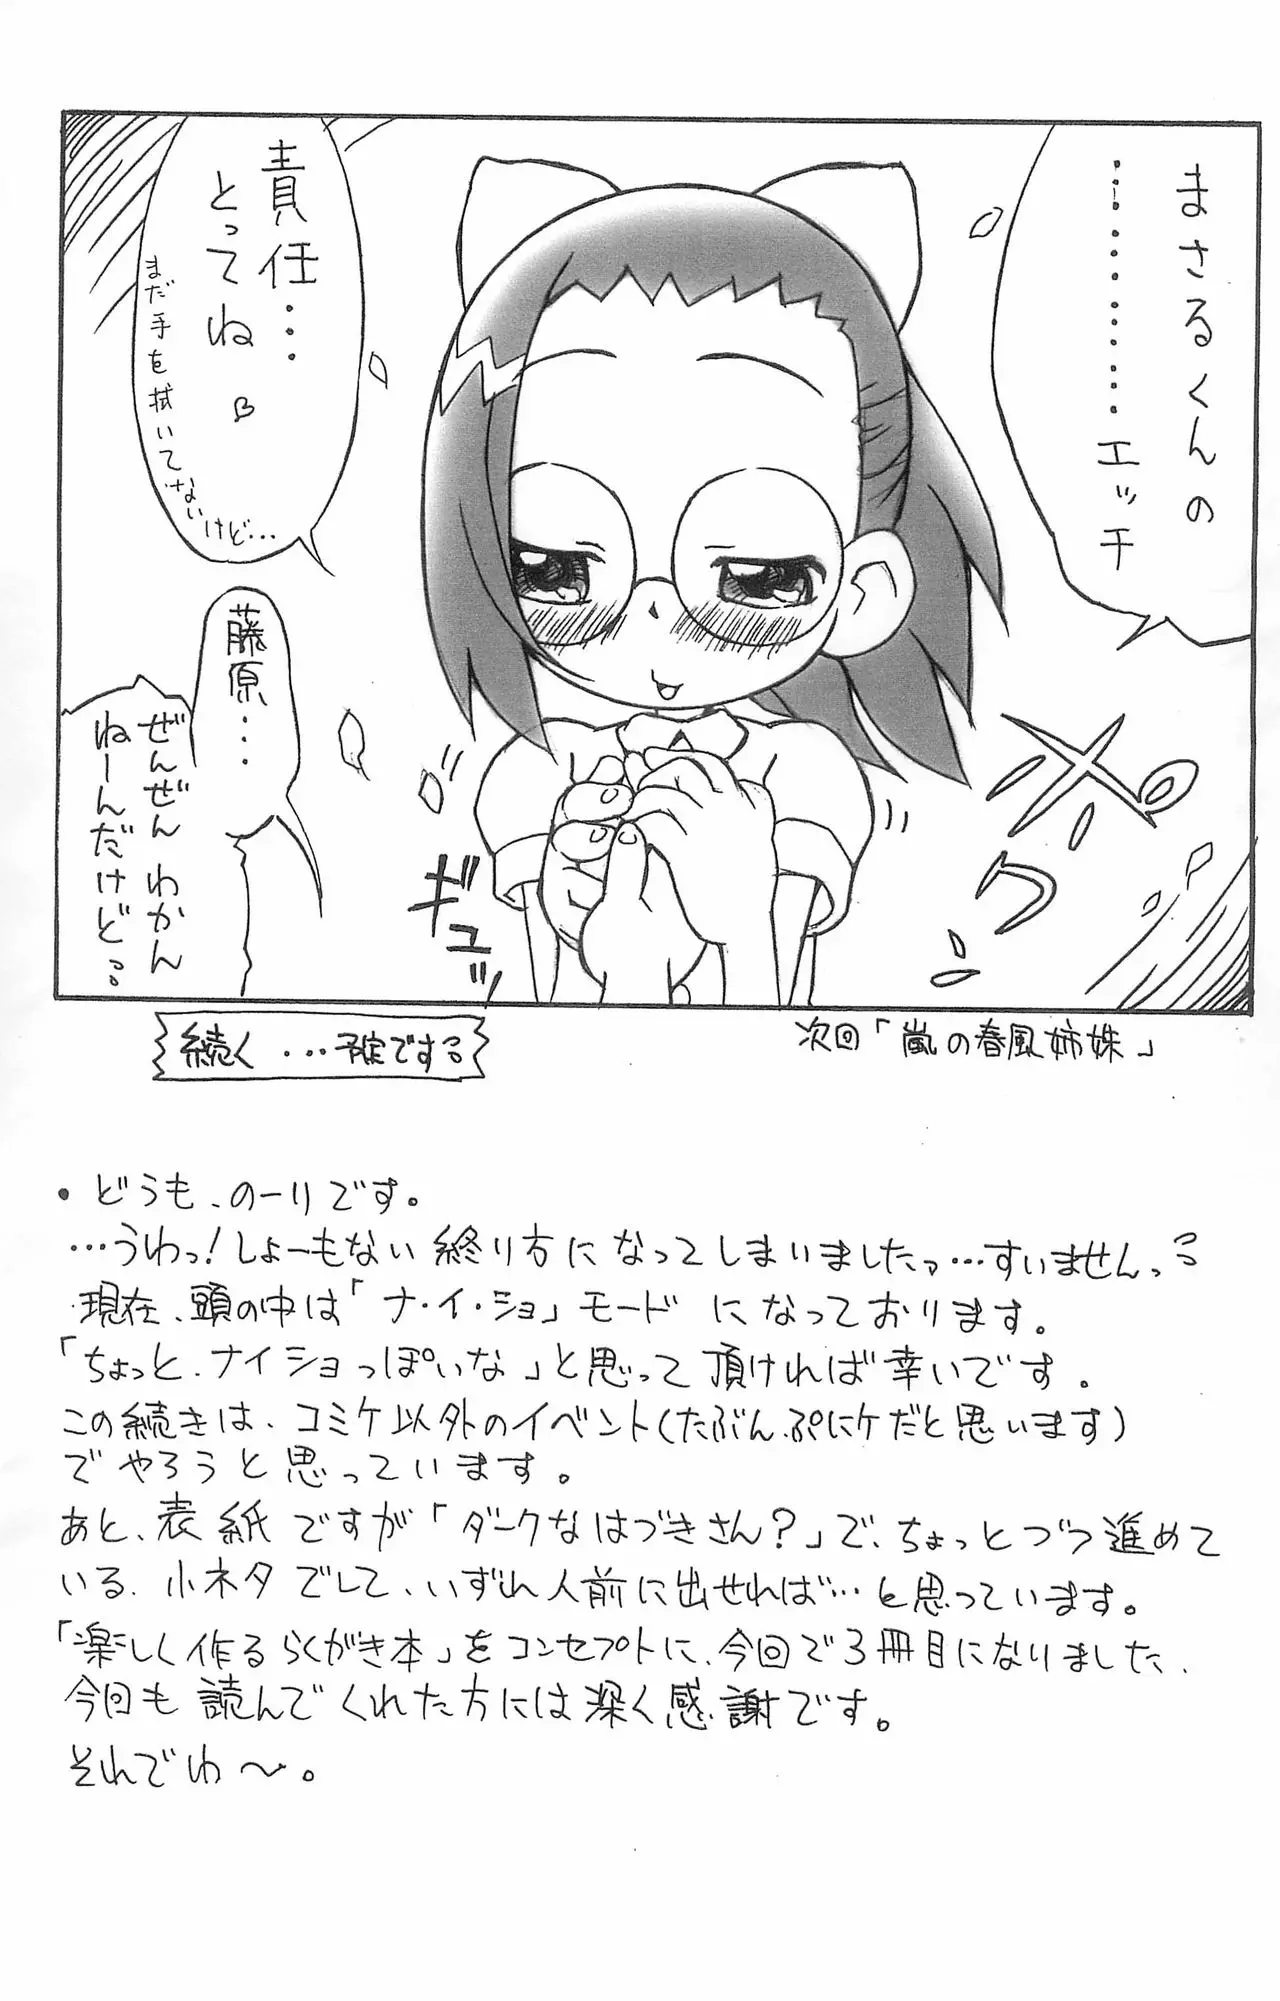 まさるくんの
…………………エッチ
責任…
とってね♡
まだ手を拭いてないけど…
藤原……
ぜんぜん わかん
ねーんだけど…
ギュッ
続く …予定です
次回「嵐の春風姉妹」
・どうも、のーりです。
…うわっ!しょーもない終り方になってしまいましたッ…すいませんっ
現在、頭の中は「ナ・イ・ショ」モードになっております。
「ちょっと、ナイショっぽいな」と思って頂ければ幸いです。
この続きは、コミケ以外のイベント(たぶん、ぷにケだと思います)
でやろうと思っています。
あと、表紙ですが「ダークなはづきさん?」で、ちょっとづつ進めて
いる、小ネタでして、いずれ人前に出せれば…と思っています。
「楽しく作るらくがき本」をコンセプトに、今回で3冊目になりました、
今回も読んでくれた方には深く感謝です。
それでわ〜。